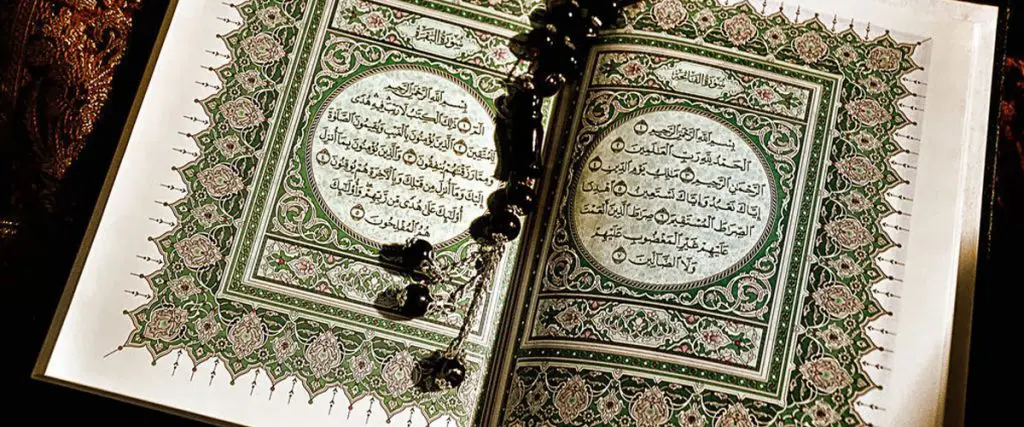 سورة الفاتحة
بسم الله الرحمن الرحيم ١
الحمد لله رب العلمين ٢
الرحمن الرحيم ٣ ملك يوم الدين ٤
إياك نعبد وإياك نستعين ٥ اهدنا
الصرط المستقيم ٦ صرط الذين أنعمت
عليهم غير المغضوب عليهم
ولا الضالين ٧
سورة البقرة
بسم الله الرحمن الرحيم
الم ١ ذلك الكتب لا ريب فيه هدى
للمتقين ٢ الذين يؤمنون بالغيب ويقيمون الصلوة
ومما رزقنهم ينفقون ٣ والذين يؤمنون بما أنزل
إليك وما أنزل من قبلك وبالآخرة هم يوقنون ٤
أولئك على هدى من ربهم وأولئك
هم المفلحون ٥